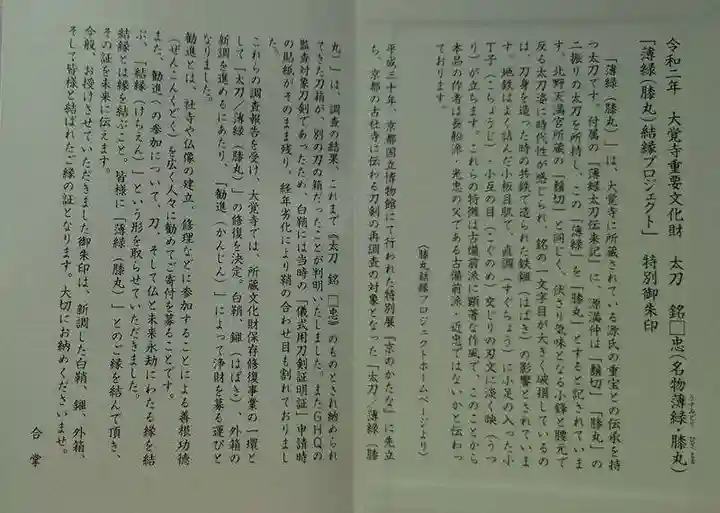 令和二年　大覚寺重要文化財　太刀　銘□忠(名物薄緑・膝丸)
「薄緑(膝丸)結縁プロジェクト」　特別御朱印
「薄緑(膝丸)」は、大覚寺に所蔵されている源氏の重宝との伝承を持
つ太刀です。付属の「薄緑太刀伝来記」に、源満仲は「鬚切」「膝丸」の
二振りの太刀を所持し、この「薄緑」を「膝丸」とすると記されていま
す。北野天満宮所蔵の「鬚切」と同じく、伏さり気味となる小鋒と腰元で
反る太刀姿に時代性が感じられ、銘の一文字目が大きく破損しているの
は、刀身を造った時の共鉄で造られた鉄鎺(はばき)の影響とされていま
す。地鉄はよく詰んだ小板目肌で、直調(すぐちょう)に小足の入った小
丁子(こちょうじ)・小互の目(こぐのめ)交じりの刃文に淡く映(うつ
り)が立ちます。これらの特徴は古備前派に顕著な作風で、このことから
本品の作者は長船派・光忠の父である古備前派・近忠ではないかと伝わっ
ております。
(膝丸結縁プロジェクトホームページより)
平成三十年、京都国立博物館にて行われた特別展『京のかたな』に先立
ち、京都の古社寺に伝わる刀剣の再調査の対象となった「太刀／薄緑(膝
丸)」は、調査の結果、これまで《太刀　銘　□忠》のものとされ納められ
てきた刀箱が、別の刀の箱だったことが判明いたしました。またGHQの
監査対象刀剣であったため、白鞘には当時の「儀式用刀剣証明証」申請時
の貼紙がそのまま残り、経年劣化により鞘の合わせ目も割れておりまし
た。
これらの調査報告を受け、大覚寺では、所蔵文化財保存修復事業の一環と
して「太刀／薄緑(膝丸)」の修復を決定。白鞘、鎺(はばき)、外箱の
新調を進めるにあたり、「勧進(かんじん)」によって浄財を募る運びと
なりました。
勧進とは、社寺や仏像の建立、修理などに参加することによる善根功徳
(ぜんこんくどく)を広く人々に勧めてご寄付を募ることです。
また、勧進への参加について、刀、そして仏と未来永劫にわたる縁を結
ぶ、「結縁(けちえん)」という形を取らせていただきました。
結縁とは縁を結ぶこと。皆様に「薄緑(膝丸)」とのご縁を結んで頂き、
その証を未来に伝えます。
今般、お授けさせていただきました御朱印は、新調した白鞘、鎺、外箱、
そして皆様と結ばれたご縁の証となります。大切にお納めくださいませ。
合掌